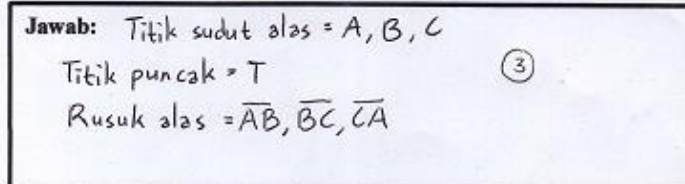 Jawab: Titik sudut alas = A, B, C
Titik puncak = T
3
Rusuk alas = A̅B̅, B̅C̅, C̅A̅